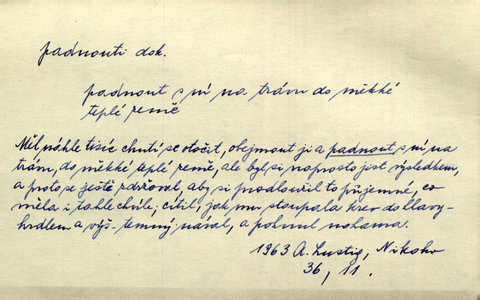 padnouti dok.
padnout s ní na trávu do měkké
teplé země
Měl náhle tisíc chutí se otočit, obejmout ji a padnout s ní na
trávu, do měkké teplé země, ale byl si naprosto jist výsledkem,
a proto se ještě zdržoval, aby si prodloužil to příjemné, co
měla i tahle chvíle; cítil, jak mu stoupala krev do hlavy -
hrdlem a výš - temný nával, a pohnul nohama.
1963 A. Lustig, Nikoho
36, 11.